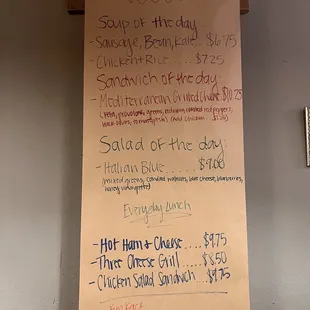 Soup of the day
- Sausage, Bean, Kale... $6.75
- Chicken + Rice . . . $7.25
Sandwich of the day:
- Mediterranean Grilled Cheese $10.25
Salad of the day:
- Italian Blue . . . . . $9.00
(mixed greens, candied walnuts, blue cheese, blueberries,
honey vinaigrette)
Everyday Lunch
- Hot Ham + Cheese .... $9.75
- Three Cheese Grill .... $8.50
- Chicken Salad Sandwich ... $9.75